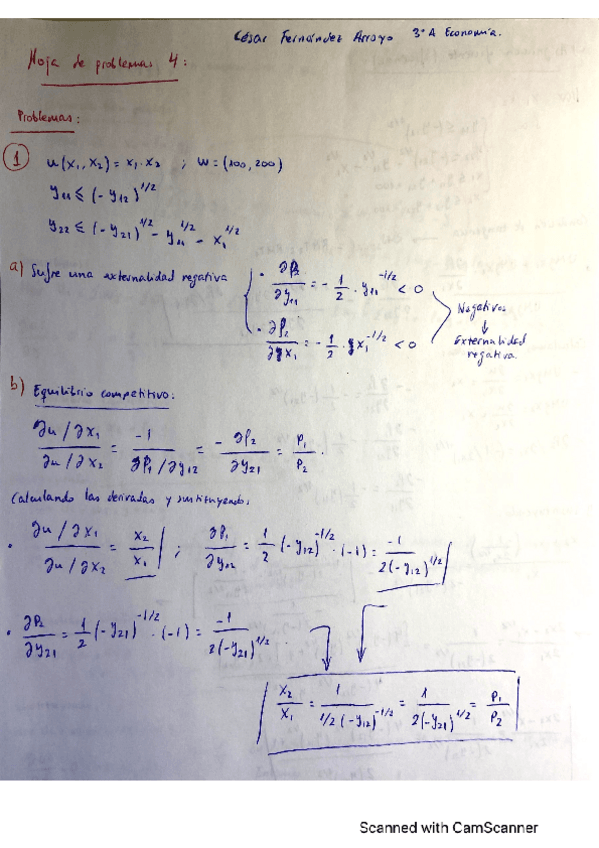 César Fernández Arroyo 3º A Economía.
Hoja de problemas 4:
Problemas:
1 u(x₁, x₂) = x₁·x₂ ; W = (100, 200)
y₁₁ ≤ (-y₁₂)^1/2
y₂₂ ≤ (-y₂₁)^1/2 - y₁₁^1/2 - x₁^1/2
a) Sufre una externalidad negativa { · ∂f₂/∂y₁₁ = -1/2 · y₁₁^-1/2 < 0
· ∂f₂/∂x₁ = -1/2 · x₁^-1/2 < 0
Negativos
↓
Externalidad
negativa.
b) Equilibrio competitivo:
∂u/∂x₁ / ∂u/∂x₂ = -1 / ∂f₁/∂y₁₂ = - ∂f₂/∂y₂₁ = P₁/P₂.
Calculando las derivadas y sustituyendo:
· ∂u/∂x₁ / ∂u/∂x₂ = x₂/x₁ | ; ∂f₁/∂y₁₂ = 1/2 (-y₁₂)^-1/2 · (-1) = -1 / 2(-y₁₂)^1/2 |
· ∂f₂/∂y₂₁ = 1/2 (-y₂₁)^-1/2 · (-1) = -1 / 2(-y₂₁)^1/2 .
x₂/x₁ = 1 / 1/2 (-y₁₂)^-1/2 = 1 / 2(-y₂₁)^1/2 = P₁/P₂
Scanned with CamScanner